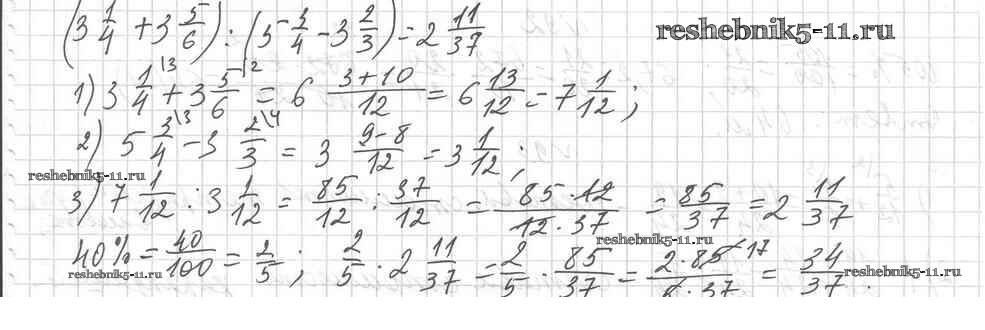 (3 1/4 + 3 5/6) : (5 3/4 - 3 2/3) = 2 11/37
reshebnik5-11.ru
1) 3 1/4 \3 + 3 5/6 \2 = 6 (3+10)/12 = 6 13/12 = 7 1/12;
2) 5 3/4 \3 - 3 2/3 \4 = 3 (9-8)/12 = 3 1/12;
reshebnik5-11.ru
3) 7 1/12 : 3 1/12 = 85/12 : 37/12 = (85·12)/(12·37) = 85/37 = 2 11/37
reshebnik5-11.ru
40% = 40/100 = 2/5; 2/5 : 2 11/37 = 2/5 · 85/37 = (2·85 17)/(5·37) = 34/37.
reshebnik5-11.ru
reshebnik5-11.ru